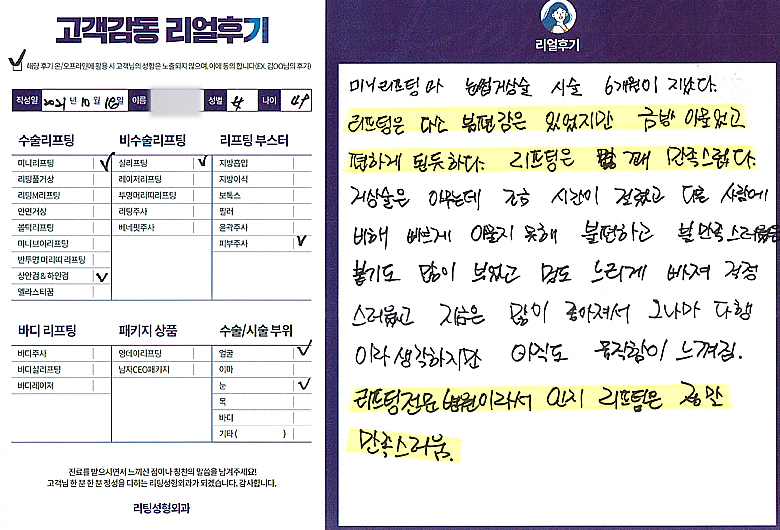 고객감동 리얼후기
해당 후기 온/오프라인에 활용 시 고객님의 성함은 노출되지 않으며, 이에 동의 합니다(EX. 김OO님의 후기)
작성일 2021년 10월 18일 이름 성별 나이
수술리프팅 비수술리프팅 리프팅 부스터
미니리프팅 실리프팅 지방흡입
리팅풀가상 레이저리프팅 지방이식
리팅M리프팅 투명머리띠리프팅 보톡스
안면거상 리팅주사 필러
볼턱리프팅 베네핏주사 윤곽주사
미니브이리프팅 피부주사
반투명 머리띠 리프팅
상안검 & 하안검
엘라스티꿈
바디 리프팅 패키지 상품 수술/시술 부위
바디주사 엉데이리프팅 얼굴
바디실리프팅 남자CEO패키지 이마
바디레이저 눈
목
바디
기타 ( )
진료를 받으시면서 느끼신 점이나 칭찬의 말씀을 남겨주세요!
고객님 한 분 한 분 정성을 다하는 리팅성형외과가 되겠습니다. 감사합니다.
리팅성형외과
리얼후기
미니리프팅과 눈썹거상술 시술 6개월이 지났다.
리프팅은 다소 불편감은 있었지만 금방 아물었고
편하게 된듯하다. 리프팅은 꽤 만족스럽다.
거상술은 아무는데 조금 시간이 걸렸고 다른 사람에
비해 빠르게 아물지 못해 불편하고 불만족스러웠음
붓기도 많이 부었고 멍도 느리게 빠져 걱정
스러웠고 지금은 많이 좋아져서 그나마 다행
이라 생각하지만 아직도 묵직함이 느껴짐.
리프팅전문병원이라서 인지 리프팅은 정말
만족스러움.